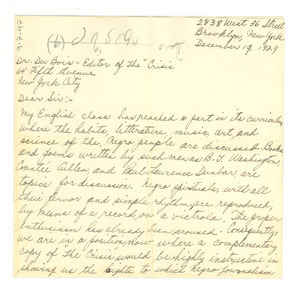 2838 West 36 Street
Brooklyn, New York
December 19, 1929
Dr. Du Bois - Editor of The "Crisis"
69 Fifth Avenue
New York City
Dear Sir:-
My English class has reached a part in its curriculum
where the habits, litterature, music, art, and
science of the Negro people are discussed. Books
and poems written by such men as B. T. Washington
Countée Cullen, and Paul Laurence Dunbar, are
topics for discussion. Negro spirituals, with all
their fervor and simple rhythm, are reproduced,
by means of a record, on a victrola. The proper
enthusiasm has already been aroused. Consequently,
we are in a position, now where a complimentary
copy of "The Crisis" would be highly instructive in
showing us the heights to which Negro Journalism